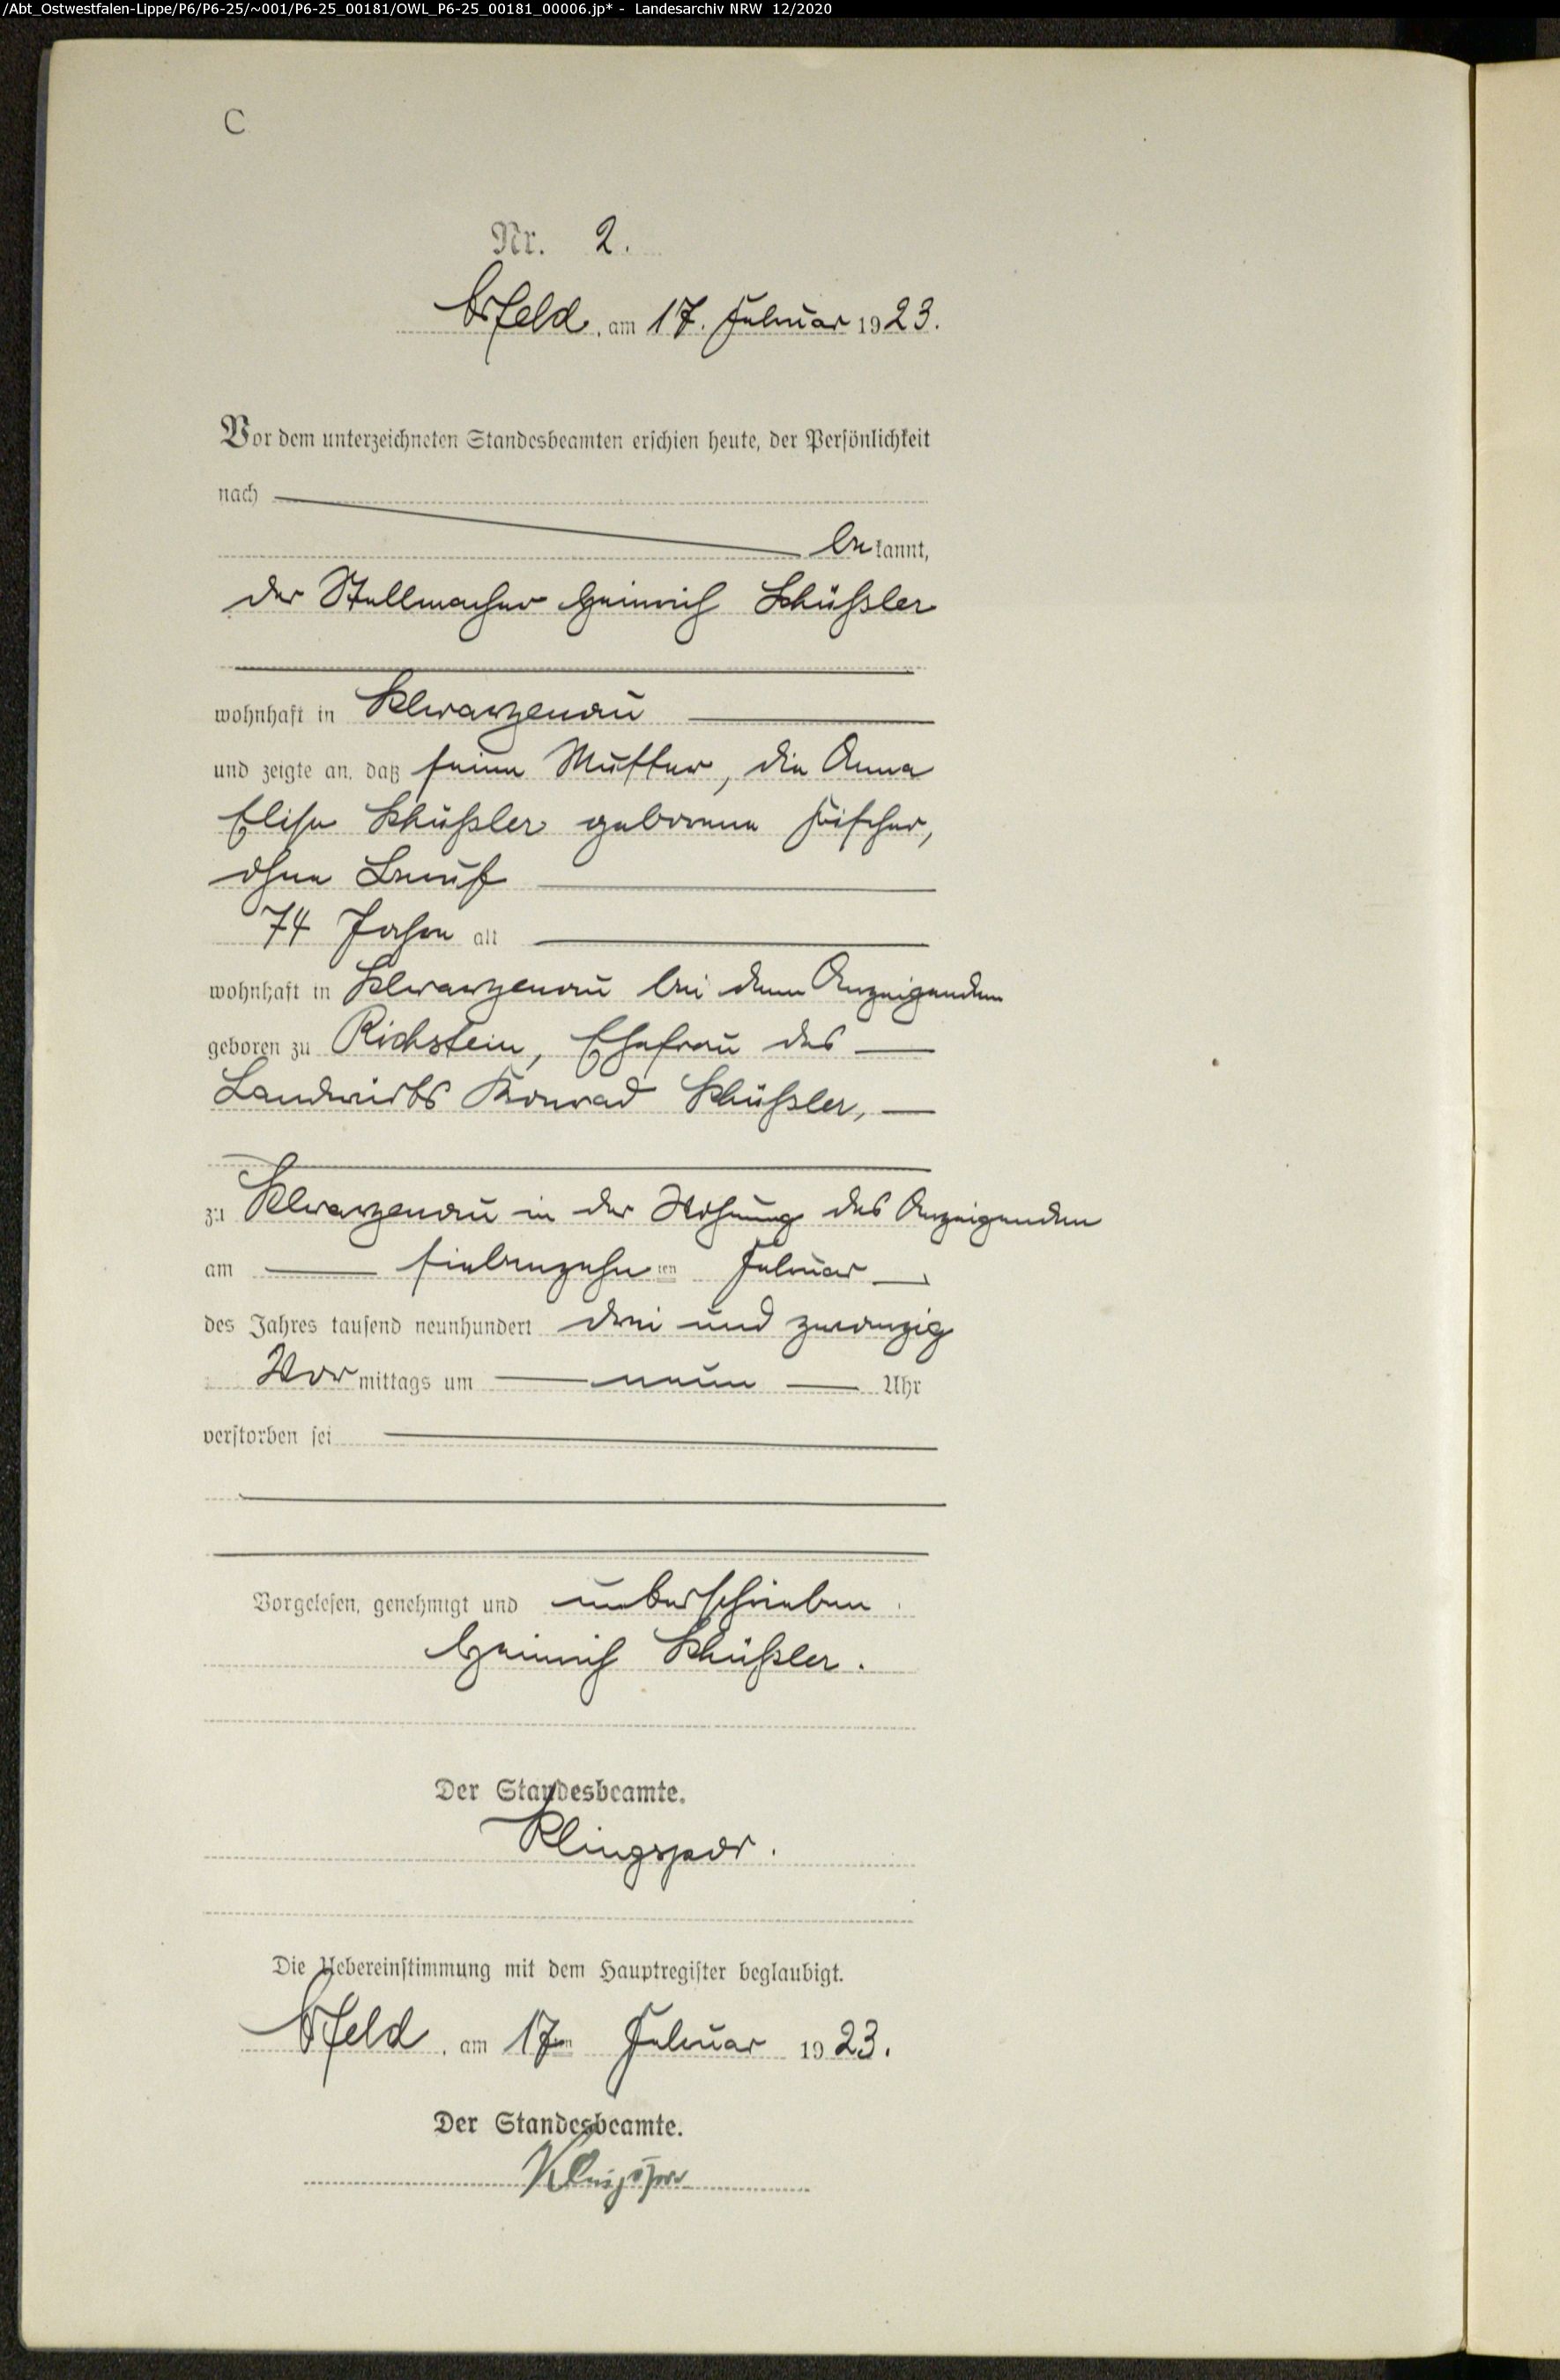 /Abt_Ostwestfalen-Lippe/P6/P6-25/~001/P6-25_00181/OWL_P6-25_00181_00006.jp* - Landesarchiv NRW 12/2020
C
Nr. 2.
Arfeld, am 17. Februar 1923.
Vor dem unterzeichneten Standesbeamten erschien heute, der Persönlichkeit
nach
bekannt,
der Stellmacher Heinrich Schüßler
wohnhaft in Schwarzenau
und zeigte an, daß seine Mutter, die Anna
Elise Schüßler geborene Fischer,
ohne Beruf
74 Jahre alt
wohnhaft in Schwarzenau bei dem Anzeigenden
geboren zu Richstein, Ehefrau des
Landwirts Konrad Schüßler,
zu Schwarzenau in der Wohnung des Anzeigenden
am siebenzehnten Februar
des Jahres tausend neunhundert drei und zwanzig
Vormittags um neun Uhr
verstorben sei
Vorgelesen, genehmigt und unterschrieben.
Heinrich Schüßler.
Der Standesbeamte.
Klingspor.
Die Uebereinstimmung mit dem Hauptregister beglaubigt.
Arfeld, am 17ten Februar 1923.
Der Standesbeamte.
Klingspor